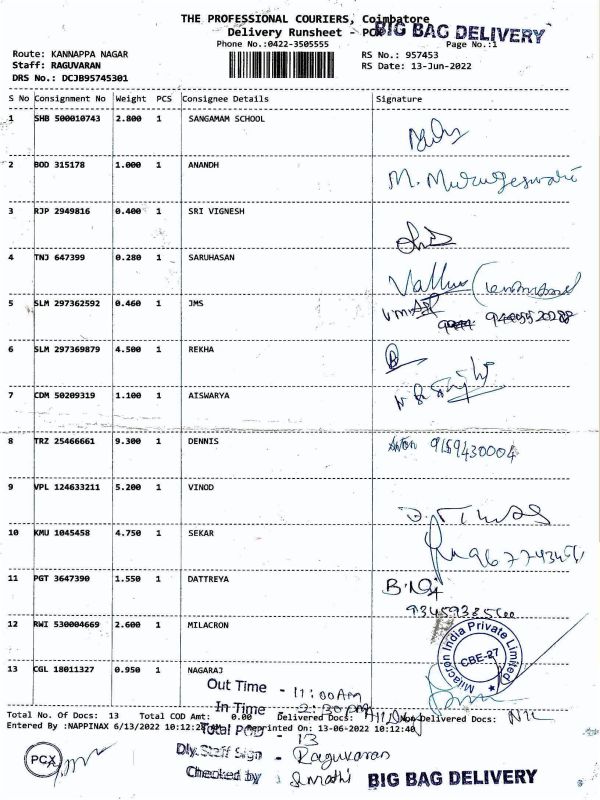 THE PROFESSIONAL COURIERS, Coimbatore
BIG BAG DELIVERY
Delivery Runsheet - POX
Phone No.:0422-3505555
Page No.:1
Route: KANNAPPA NAGAR
RS No.: 957453
Staff: RAGUVARAN
RS Date: 13-Jun-2022
DRS No.: DCJB95745301
S No Consignment No Weight PCS Consignee Details Signature
1 SHB 500010743 2.800 1 SANGAMAM SCHOOL
2 BOD 315178 1.000 1 ANANDH M. Murugeswari
3 RJP 2949816 0.400 1 SRI VIGNESH
4 TNJ 647399 0.280 1 SARUHASAN
5 SLM 297362592 0.460 1 JMS
6 SLM 297369879 4.500 1 REKHA
7 CDM 50209319 1.100 1 AISWARYA
8 TRZ 25466661 9.300 1 DENNIS 9159430004
9 VPL 124633211 5.200 1 VINOD
10 KMU 1045458 4.750 1 SEKAR
11 PGT 3647390 1.550 1 DATTREYA
12 RWI 530004669 2.600 1 MILACRON
Milacron India Private Limited
CBE-27
13 CGL 18011327 0.950 1 NAGARAJ
Out Time - 11:00Am
In Time - 2:30pm
Total No. Of Docs: 13 Total COD Amt: 0.00 Delivered Docs: Non Delivered Docs: Nil
Entered By :NAPPINAX 6/13/2022 10:12:2 Reprinted On: 13-06-2022 10:12:40
Total POD - 13
Dly.Staff Sign - Raguvaran
PCX
Checked by
BIG BAG DELIVERY